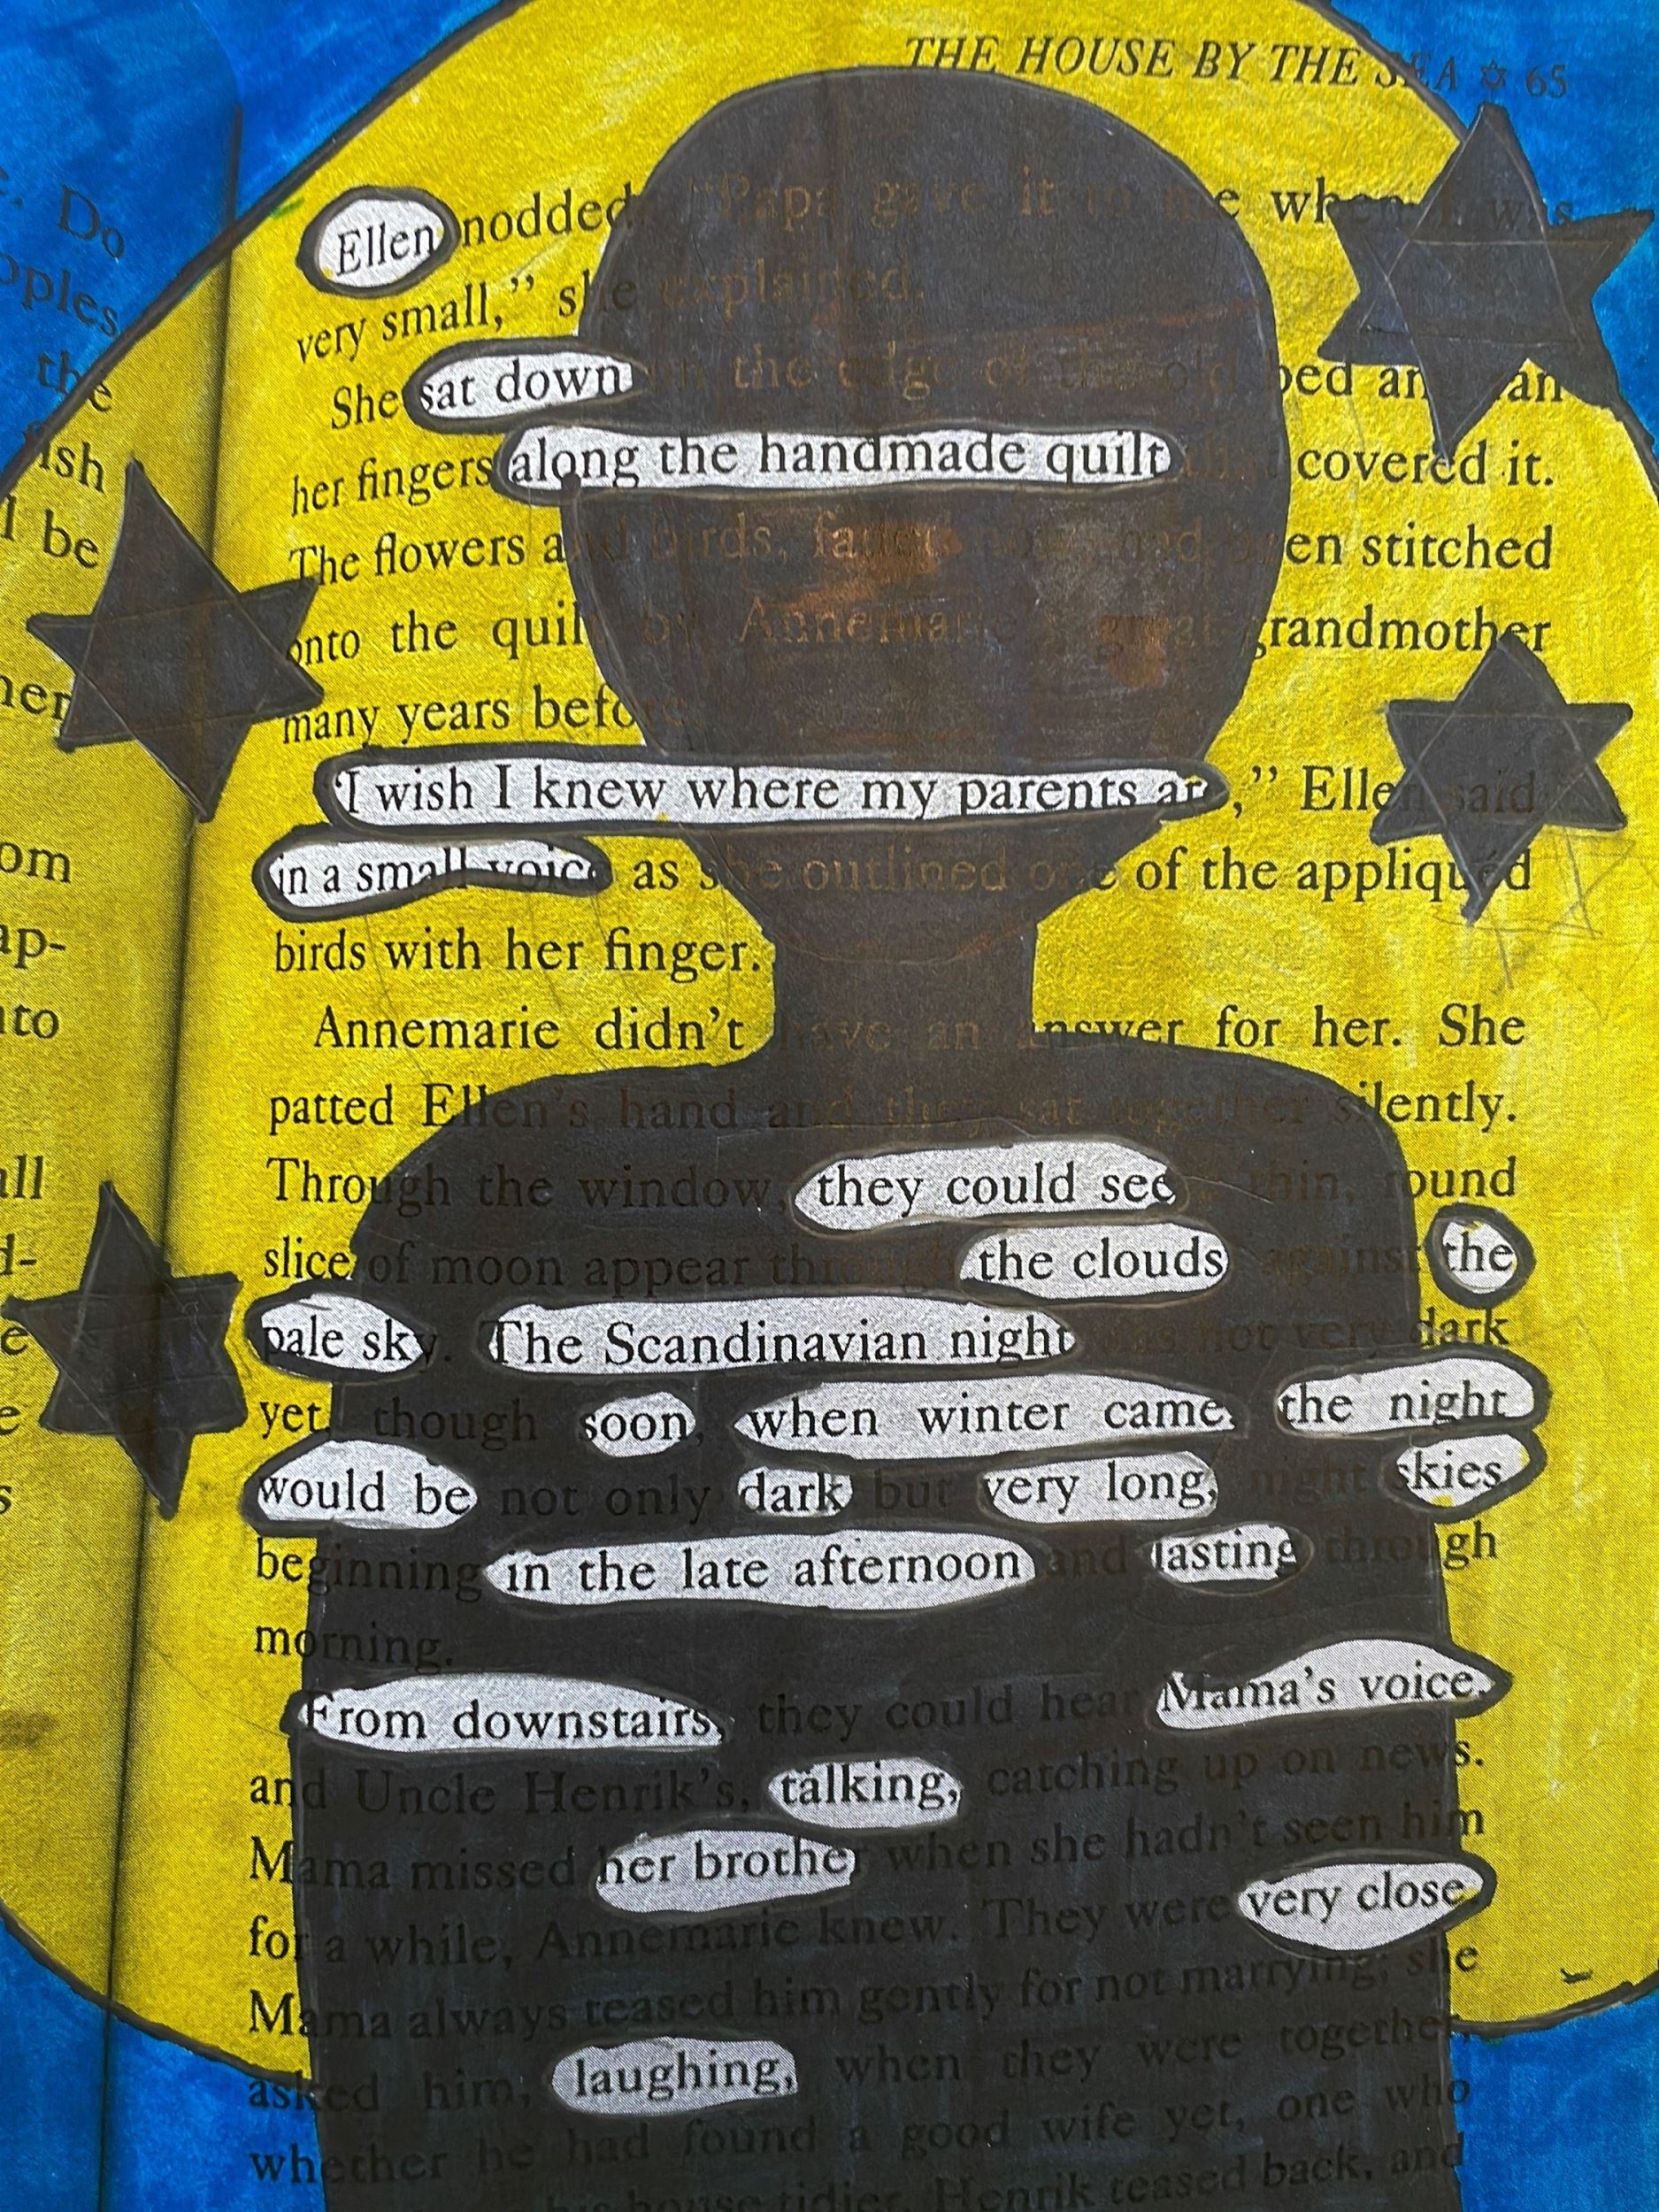 THE HOUSE BY THE SEA ✡ 65
. Do
oples
the
ish
l be
her
om
ap-
nto
all
d-
e
e
s
Ellen nodded. "Papa gave it to me when I was
very small," she explained.
She sat down on the edge of the old bed and ran
her fingers along the handmade quilt that covered it.
The flowers and birds, faded now, had been stitched
onto the quilt by Annemarie's great-grandmother
many years before.
"I wish I knew where my parents are," Ellen said
in a small voice as she outlined one of the appliquéd
birds with her finger.
Annemarie didn't have an answer for her. She
patted Ellen's hand and they sat together silently.
Through the window, they could see a thin, round
slice of moon appear through the clouds against the
pale sky. The Scandinavian night was not very dark
yet, though soon, when winter came, the night
would be not only dark but very long, night skies
beginning in the late afternoon and lasting through
morning.
From downstairs, they could hear Mama's voice,
and Uncle Henrik's, talking, catching up on news.
Mama missed her brother when she hadn't seen him
for a while, Annemarie knew. They were very close.
Mama always teased him gently for not marrying; she
asked him, laughing, when they were together,
whether he had found a good wife yet, one who
his house tidier. Henrik teased back, and